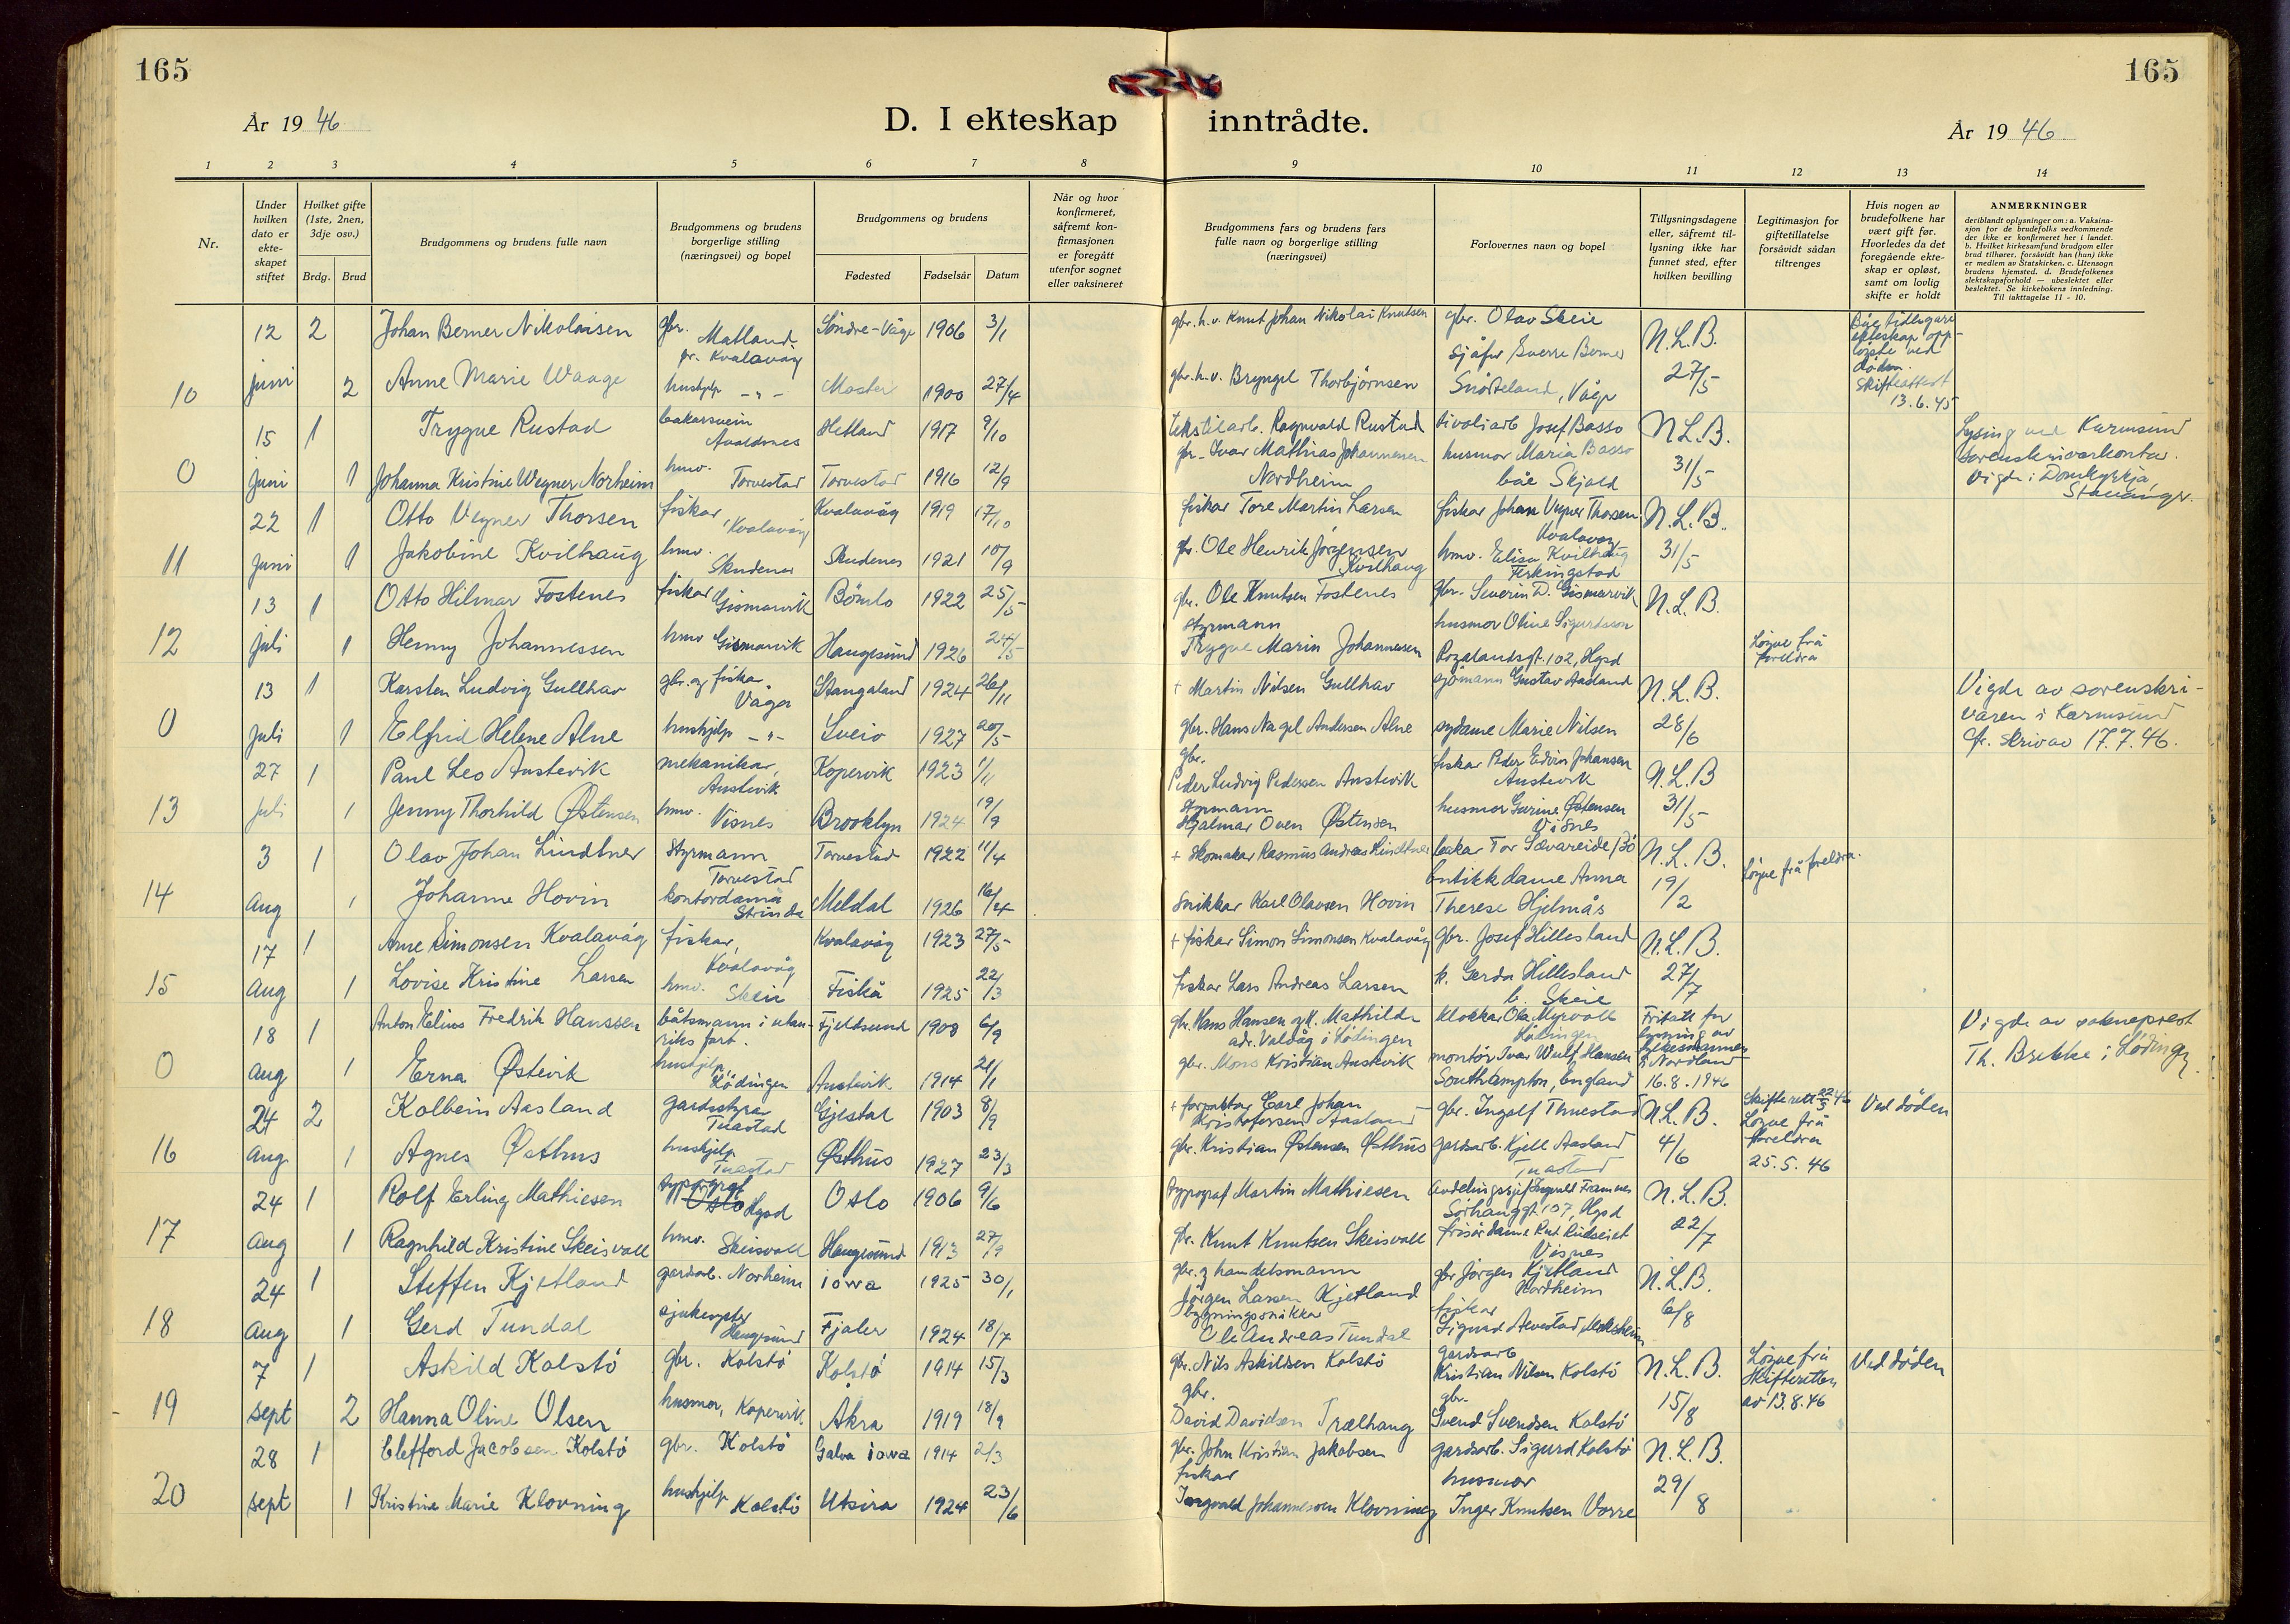 165
165
År 19 46
D. I ekteskap inntrådte.
År 19 46.
1 2 3 4 5 6 7 8 9 10 11 12 13 14
Nr.
Under hvilken dato er ekte-skapet stiftet
Hvilket gifte (1ste, 2nen, 3dje osv.)
Brdg. Brud
Brudgommens og brudens fulle navn
Brudgommens og brudens borgerlige stilling (næringsvei) og bopel
Brudgommens og brudens
Fødested Fødselsår Datum
Når og hvor konfirmeret, såfremt kon-firmasjonen er foregått utenfor sognet eller vaksineret
Brudgommens fars og brudens fars fulle navn og borgerlige stilling (næringsvei)
Forlovernes navn og bopel
Tillysningsdagene eller, såfremt til-lysning ikke har funnet sted, efter hvilken bevilling
Legitimasjon for giftetillatelse forsåvidt sådan tiltrenges
Hvis nogen av brudefolkene har vært gift før. Hvorledes da det foregående ekte-skap er opløst, samt om lovlig skifte er holdt
ANMERKNINGER
deriblandt oplysninger om: a. Vaksina-sjon for de brudefolks vedkommende der ikke er konfirmeret her i landet. b. Hvilket kirkesamfund brudgom eller brud tilhører, forsåvidt han (hun) ikke er medlem av Statskirken. c. Utensogn brudens hjemsted. d. Brudefolkenes slektskapsforhold — ubeslektet eller beslektet. Se kirkebokens innledning. Til iakttagelse 11 - 10.
12 2 Johan Berner Nikolaisen gbr. Matland pr. Kvalavåg Söndre-Våge 1906 3/1 gbr. h.v. Knut Johan Nikolai Knutsen gbr. Olav Skeie N.L.B. Båe tidlegare ekteskap opp-löyste ved döden. Skifteattest 13.6.45
10 juni 2 Anne Marie Waage hushjelp -"- Moster 1900 27/4 gbr. h.v. Bryngel Thorbjörnsen sjåfør Sverre Berner Snörteland, Våge 27/5
15 1 Trygve Rustad bakarsvein Avaldsnes Hetland 1917 9/10 tekstilarb. Ragnvald Rustad tivoliarb Josef Basso N.L.B. Lysing ved Karmsund sorenskrivarkontor. Vigde i Domkyrkja, Stavanger.
0 juni 1 Johanna Kristine Wegner Norheim hmv. Torvestad Torvestad 1916 12/9 gbr. Ivar Mathias Johannessen Nordheim husmor Maria Basso båe Skjold 31/5
22 1 Otto Vegner Thorsen fiskar, Kvalavåg Kvalavåg 1919 17/10 fiskar Tore Martin Larsen fiskar Johan Vegner Thorsen Kvalavåg N.L.B.
11 juni 1 Jakobine Kvilhaug hmv. Skudenes Skudenes 1921 10/9 gbr. Ole Henrik Jörgensen Kvilhaug hmv. Elisa Kvilhaug Ferkingstad 31/5
13 1 Otto Hilmar Fostenes fiskar Gismarvik Bömlo 1922 25/5 gbr. Ole Knutsen Fostenes gbr. Severin D. Gismarvik N.L.B.
12 juli 1 Henny Johannessen hmv Gismarvik Haugesund 1926 24/5 styrmann Trygve Marin Johannessen husmor Oline Sigurdsson Rogalandsgt. 102, Hgsd Löyve frå foreldra
13 1 Karsten Ludvig Gullhav gbr. og fiskar Våga Stangaland 1924 26/11 + Martin Nilsen Gullhav sjömann Gustav Aasland N.L.B. Vigde av sorenskri-varen i Karmsund jfr. skriv av 17.7.46.
0 juli 1 Elfrid Helene Alne hushjelp -"- Sveio 1927 20/5 gbr. Hans Nagel Andersen Alne sydame Marie Nilsen 28/6
27 1 Paul Leo Austevik mekanikar, Austevik Kopervik 1923 1/1 gbr. Peder Ludvig Pedersen Austevik fiskar Peder Edvin Johansen Austevik N.L.B
13 juli 1 Jenny Thorhild Östensen hmv. Visnes Brooklyn 1924 19/9 styrmann Hjalmar Oven Östensen husmor Gurine Östensen Visnes 31/5
3 1 Olav Johan Lindtner Styrmann Torvestad Torvestad 1922 11/4 + Skomakar Rasmus Andreas Lindtner bakar Tor Sævareide, Bö N.L.B. Löyve frå foreldra.
14 aug 1 Johanne Hovin kontordame Strinda Meldal 1926 16/4 Snikkar Karl Olavsen Hovin butikkdame Anna Therese Hjelmås 19/2
17 1 Arne Simonsen Kvalavåg fiskar, Kvalavåg Kvalavåg 1923 27/5 + fiskar Simon Simonsen Kvalavåg gbr. Josef Hillesland N.L.B.
15 aug 1 Lovise Kristine Larsen hmv. Skeie Fiskå 1925 22/3 fiskar Lars Andreas Larsen k. Gerda Hillesland b. Skeie 27/7
18 1 Anton Elius Fredrik Hanssen båtsmann i utan-riks fart. Fjeldsund 1908 6/9 gbr. Hans Hansen og k. Mathilde adr. Valdåg i Lödingen klokkar Ola Myrvoll Lödingen Fritatt for lysning av fylkesmannen i Nordland 16.8.1946 Vigde av sokneprest Th. Brekke i Lödingen
0 aug 1 Erna Östevik hushjelp, Lödingen Austevik 1914 21/1 gbr. Mons Kristian Austevik montör Ivar Wulf Hansen Southampton, England
24 2 Kolbein Aasland gardsstyrar Tuastad Gjestal 1903 8/9 + forpaktar Carl Johan Kristofersen Aasland gbr. Ingolf Thuestad N.L.B. Skifterett 22/5 46 Löyve frå foreldra 25.5.46 Ved döden
16 aug. 1 Agnes Østhus hushjelp Tuastad Østhus 1927 23/3 gbr. Kristian Östensen Östhus gardsarb. Kjell Aasland Tuastad 4/6
24 1 Rolf Erling Mathiesen typograf Oslo Hgsd Oslo 1906 9/6 typograf Martin Mathiesen avdelingssjef Ingvald Framnes Sörhauggt. 107, Hgsd N.L.B.
17 aug 1 Ragnhild Kristine Skeisvoll hmv. Skeisvoll Haugesund 1913 27/9 gbr. Knut Knutsen Skeisvoll frisördame Visnes 22/7
24 1 Steffen Kjetland gardarb. Norheim iowa 1925 30/1 gbr. og handelsmann Jörgen Larsen Kjetland gbr Jörgen Kjetland Nordheim N.L.B.
18 aug 1 Gerd Tundal sjukepleier Haugesund Fjaler 1924 18/7 bygningssnikkar Ole Andreas Tundal fiskar Sigurd 6/8
7 1 Askild Kolstö gbr. Kolstö Kolstö 1914 15/3 gbr. Nils Askildsen Kolstö gardsarb Kristian Nilsen Kolstö N.L.B. Löyve frå Skifteretten av 13.8.46 Ved döden
19 sept 2 Hanna Oline Olsen husmor, Kopervik. Åkra 1919 18/9 gbr. David Davidsen Trælhaug gbr. Svend Svendsen Kolstö 15/8
28 1 Clefford Jacobsen Kolstö gbr. Kolstö Galva iowa 1914 2/3 gbr. John Kristian Jakobsen gardsarb. Sigurd Kolstö N.L.B.
20 sept 1 Kristine Marie Klovning hushjelp Kolstö Utsira 1924 23/6 fiskar Ingvald Johannessen Klovning husmor Inger Knutsen Vorre 29/8